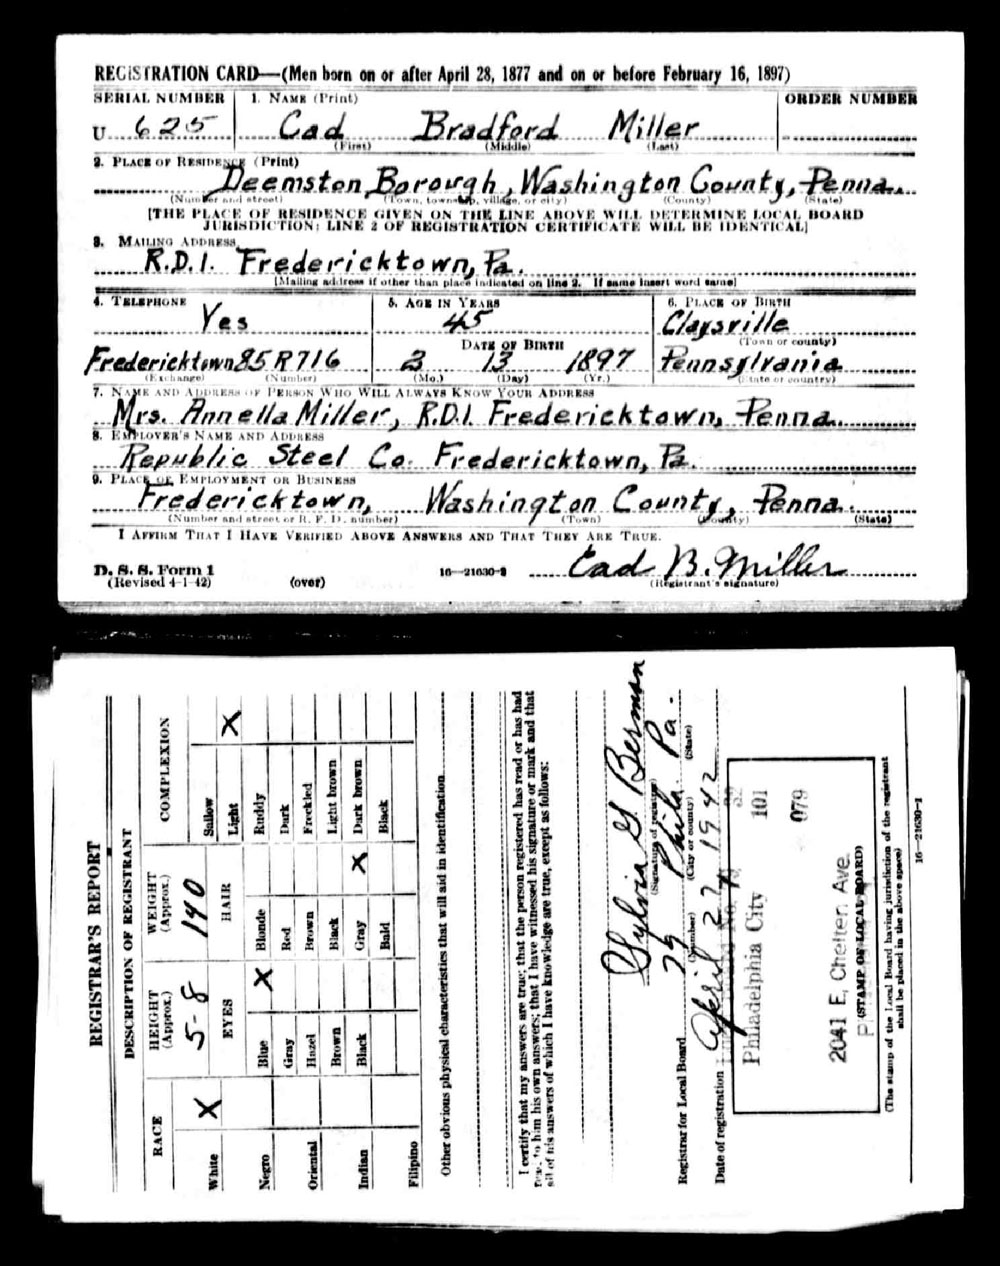 REGISTRATION CARD—(Men born on or after April 28, 1877 and on or before February 16, 1897)
SERIAL NUMBER 1. NAME (Print) ORDER NUMBER
U 625 Cad Bradford Miller
(First) (Middle) (Last)
2. PLACE OF RESIDENCE (Print)
Deemston Borough, Washington County, Penna.
(Number and street) (Town, township, village, or city) (County) (State)
[THE PLACE OF RESIDENCE GIVEN ON THE LINE ABOVE WILL DETERMINE LOCAL BOARD
JURISDICTION; LINE 2 OF REGISTRATION CERTIFICATE WILL BE IDENTICAL]
3. MAILING ADDRESS
R.D.1. Fredericktown, Pa.
[Mailing address if other than place indicated on line 2. If same insert word same]
4. TELEPHONE 5. AGE IN YEARS 6. PLACE OF BIRTH
Yes 45 Claysville
DATE OF BIRTH (Town or county)
Fredericktown 85 R 716 2 13 1897 Pennsylvania
(Exchange) (Number) (Mo.) (Day) (Yr.) (State or country)
7. NAME AND ADDRESS OF PERSON WHO WILL ALWAYS KNOW YOUR ADDRESS
Mrs. Annella Miller, R.D.1. Fredericktown, Penna.
8. EMPLOYER'S NAME AND ADDRESS
Republic Steel Co. Fredericktown, Pa.
9. PLACE OF EMPLOYMENT OR BUSINESS
Fredericktown, Washington County, Penna.
(Number and street or R. F. D. number) (Town) (County) (State)
I AFFIRM THAT I HAVE VERIFIED ABOVE ANSWERS AND THAT THEY ARE TRUE.
D. S. S. Form 1
(Revised 4-1-42) (over) 16—21630-2 Cad B. Miller
(Registrant's signature)
REGISTRAR'S REPORT
DESCRIPTION OF REGISTRANT
RACE HEIGHT (Approx.) WEIGHT (Approx.) COMPLEXION
5-8 190
White X Sallow
EYES HAIR Light X
Negro Blue X Blonde Ruddy
Gray Red Dark
Oriental Hazel Brown Freckled
Brown Black Light brown
Indian Black Gray X Dark brown
Bald Black
Filipino
Other obvious physical characteristics that will aid in identification
I certify that my answers are true; that the person registered has read or has had
read to him his own answers; that I have witnessed his signature or mark and that
all of his answers of which I have knowledge are true, except as follows:
Sylvia G Berman
(Signature of registrar)
Registrar for Local Board 79 Phila. Pa.
(Number) (City or county) (State)
Date of registration April 27 1942
Local Board No. 79 32
Philadelphia City 101
079
2041 E. Chelten Ave.
(STAMP OF LOCAL BOARD)
(The stamp of the Local Board having jurisdiction of the registrant
shall be placed in the above space)
16—21630-1